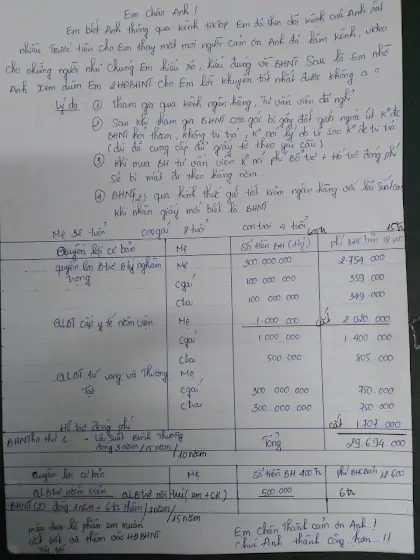 Em chào Anh!
Em biết Anh thông qua kênh tiktop Em đã theo dõi kênh của Anh rất
nhiều. Trước tiên cho Em thay mặt mọi người cảm ơn Anh đã làm kênh, video
cho những người như chúng Em hiểu rõ, hiểu đúng về BHNT. Sau là Em nhờ
Anh xem dùm Em 2HĐBHNT cho Em lời khuyên tốt nhất được không ạ
Lý do: ① Tham gia qua kênh ngân hàng, Tư vấn viên đã nghỉ
② Sau khi tham gia BHNT con gái bị gãy đốt ngón út
BHNT không chi trả, K° nói lý do vì sao K° chi trả
(dù đã cung cấp đủ giấy tờ theo yêu cầu)
③ Khi mua BH tư vấn viên K° nói phí Bổ trợ + Hỗ trợ đóng phí
sẽ bị mất đi theo hằng năm
④ BHNT(2) qua hình thức gửi tiết kiệm ngân hàng với lãi suất cao
khi nhận giấy mới biết là BHNT
Mẹ 32 tuổi con gái 8 tuổi con trai 4 tuổi
Quyền lợi cơ bản Mẹ Số tiền BH (1tỷ) phí BH cơ bản 18
Quyền lợi B trợ B lý nghiêm trọng Mẹ 300.000.000 2.754.000
Cgái 100.000.000 359.000
Ctrai 100.000.000 349.000
QLBT cấp y tế nằm viện Mẹ 1.000.000 cắt 2.020.000
Cgái 1.000.000 1.400.000
Ctrai 500.000 805.000
QLBT tử vong và Thương Tật Mẹ
Cgái 300.000.000 750.000
Ctrai 300.000.000 750.000
Hỗ trợ đóng phí cắt 1.707.000
Tổng 29.694.000
đóng 3 năm/15 năm
/10 năm
Quyền lợi cơ bản Mẹ Số tiền BH 400tr phí BH cơ bản 12.600
QLBT nằm viện QLBT nội trú (em+CK) 500.000 6tr
BHNT(2) đóng
/15 năm
màu đỏ là phần em muốn
cắt bớt và thêm vào HĐBHNT
Em chân thành cảm ơn Anh!
Chúc Anh thành công hơn...!!